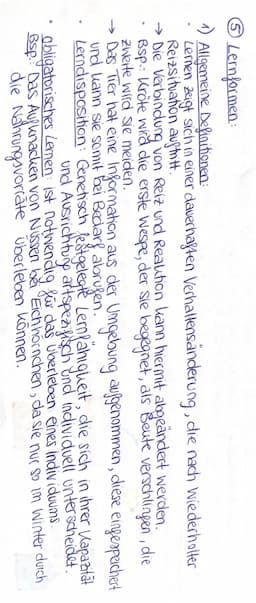 ⑤ Lernformen:
1) Allgemeine Definitionen:
• Lernen zeigt sich in einer dauerhaften Verhaltensänderung, die nach wiederholter
Reizsituation auftritt.
→ Die Verbindung von Reiz und Reaktion kann hiermit abgeändert werden.
• Bsp.: Kröte wird die erste Wespe, der sie begegnet, als Beute verschlingen, die
zweite wird sie meiden.
→ Das Tier hat eine Information aus der Umgebung aufgenommen, diese eingespeichert
und kann sie somit bei Bedarf abrufen.
• Lerndisposition: Genetisch festgelegte Lernfähigkeit, die sich in ihrer Kapazität
und Ausrichtung artspezifisch und individuell unterscheidet.
• obligatorisches Lernen: ist notwendig für das Überleben eines Individuums.
Bsp: Das Aufknacken von Nüssen bei Eichhörnchen, da sie nur so im Winter durch
die Nahrungsvorräte überleben können.